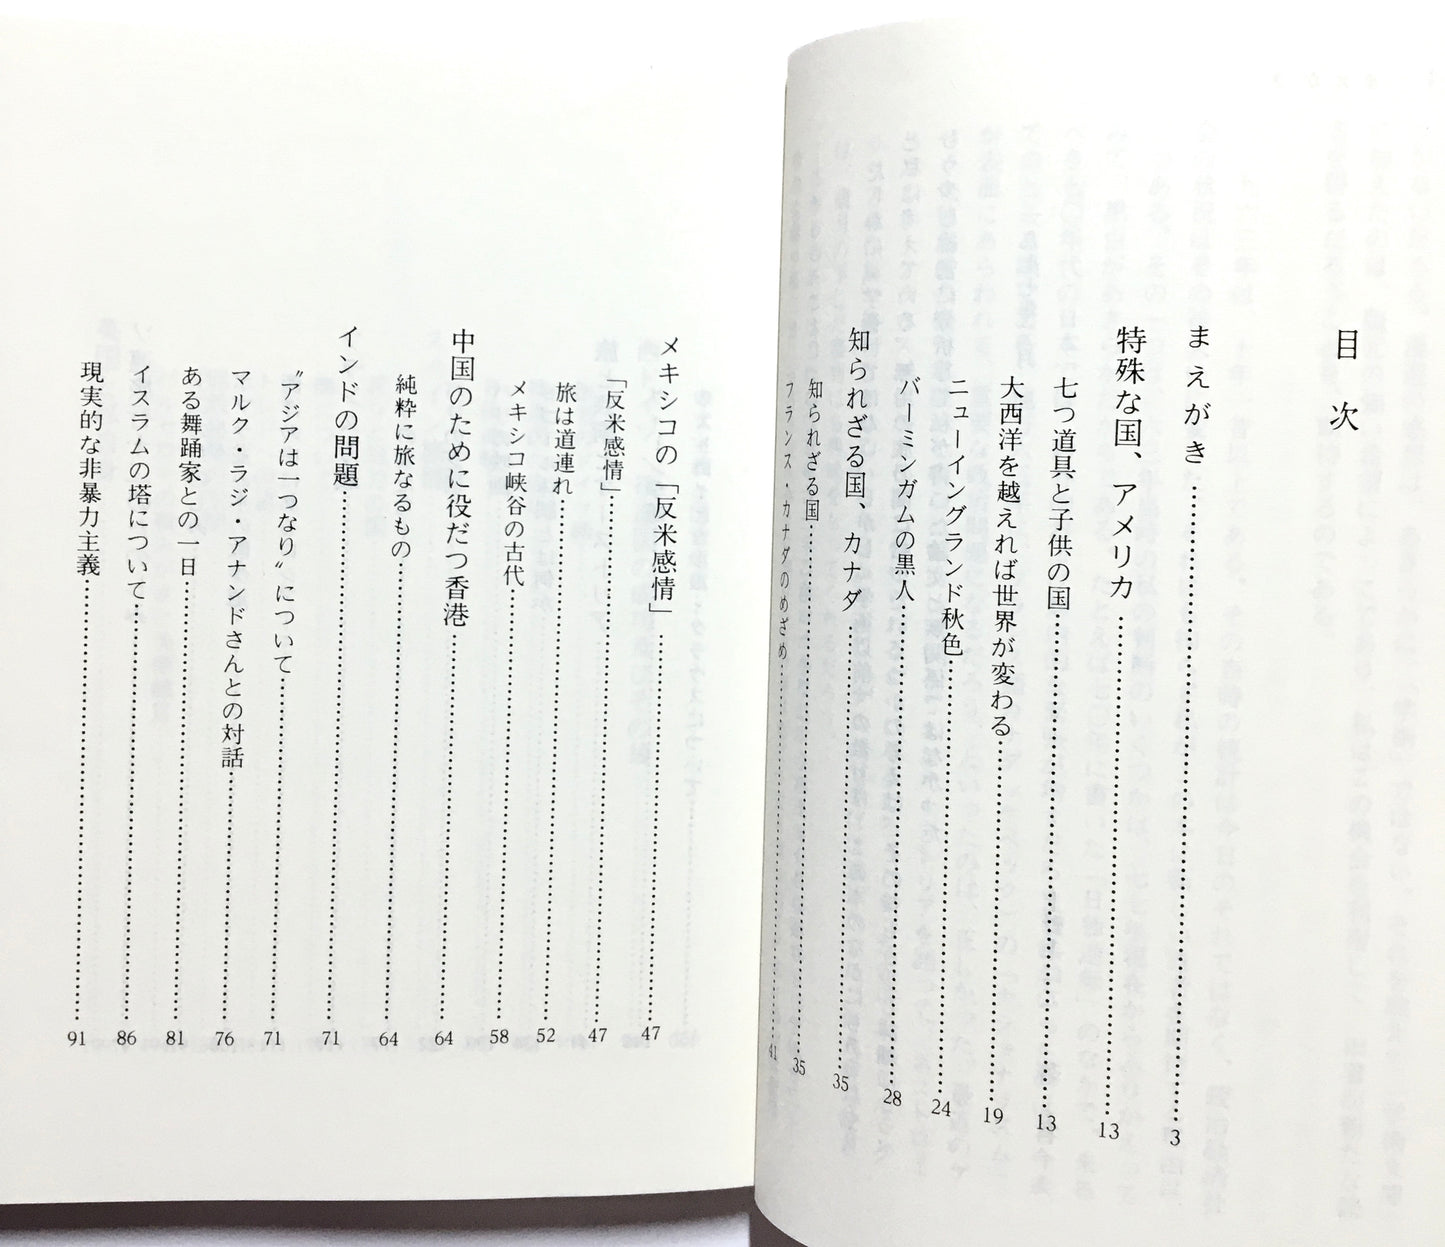 目次
まえがき……3
特殊な国、アメリカ……13
七つ道具と子供の国……13
大西洋を越えれば世界が変わる……19
ニューイングランド秋色……24
バーミンガムの黒人……28
知られざる国、カナダ……35
知られざる国……35
フランス・カナダのめざめ……41
メキシコの「反米感情」……47
「反米感情」……47
旅は道連れ……52
メキシコ峡谷の古代……58
中国のために役だつ香港……64
純粋に旅なるもの……64
インドの問題……71
〝アジアは一つなり〟について……71
マルク・ラジ・アナンドさんとの対話……76
ある舞踊家との一日……81
イスラムの塔について……86
現実的な非暴力主義……91